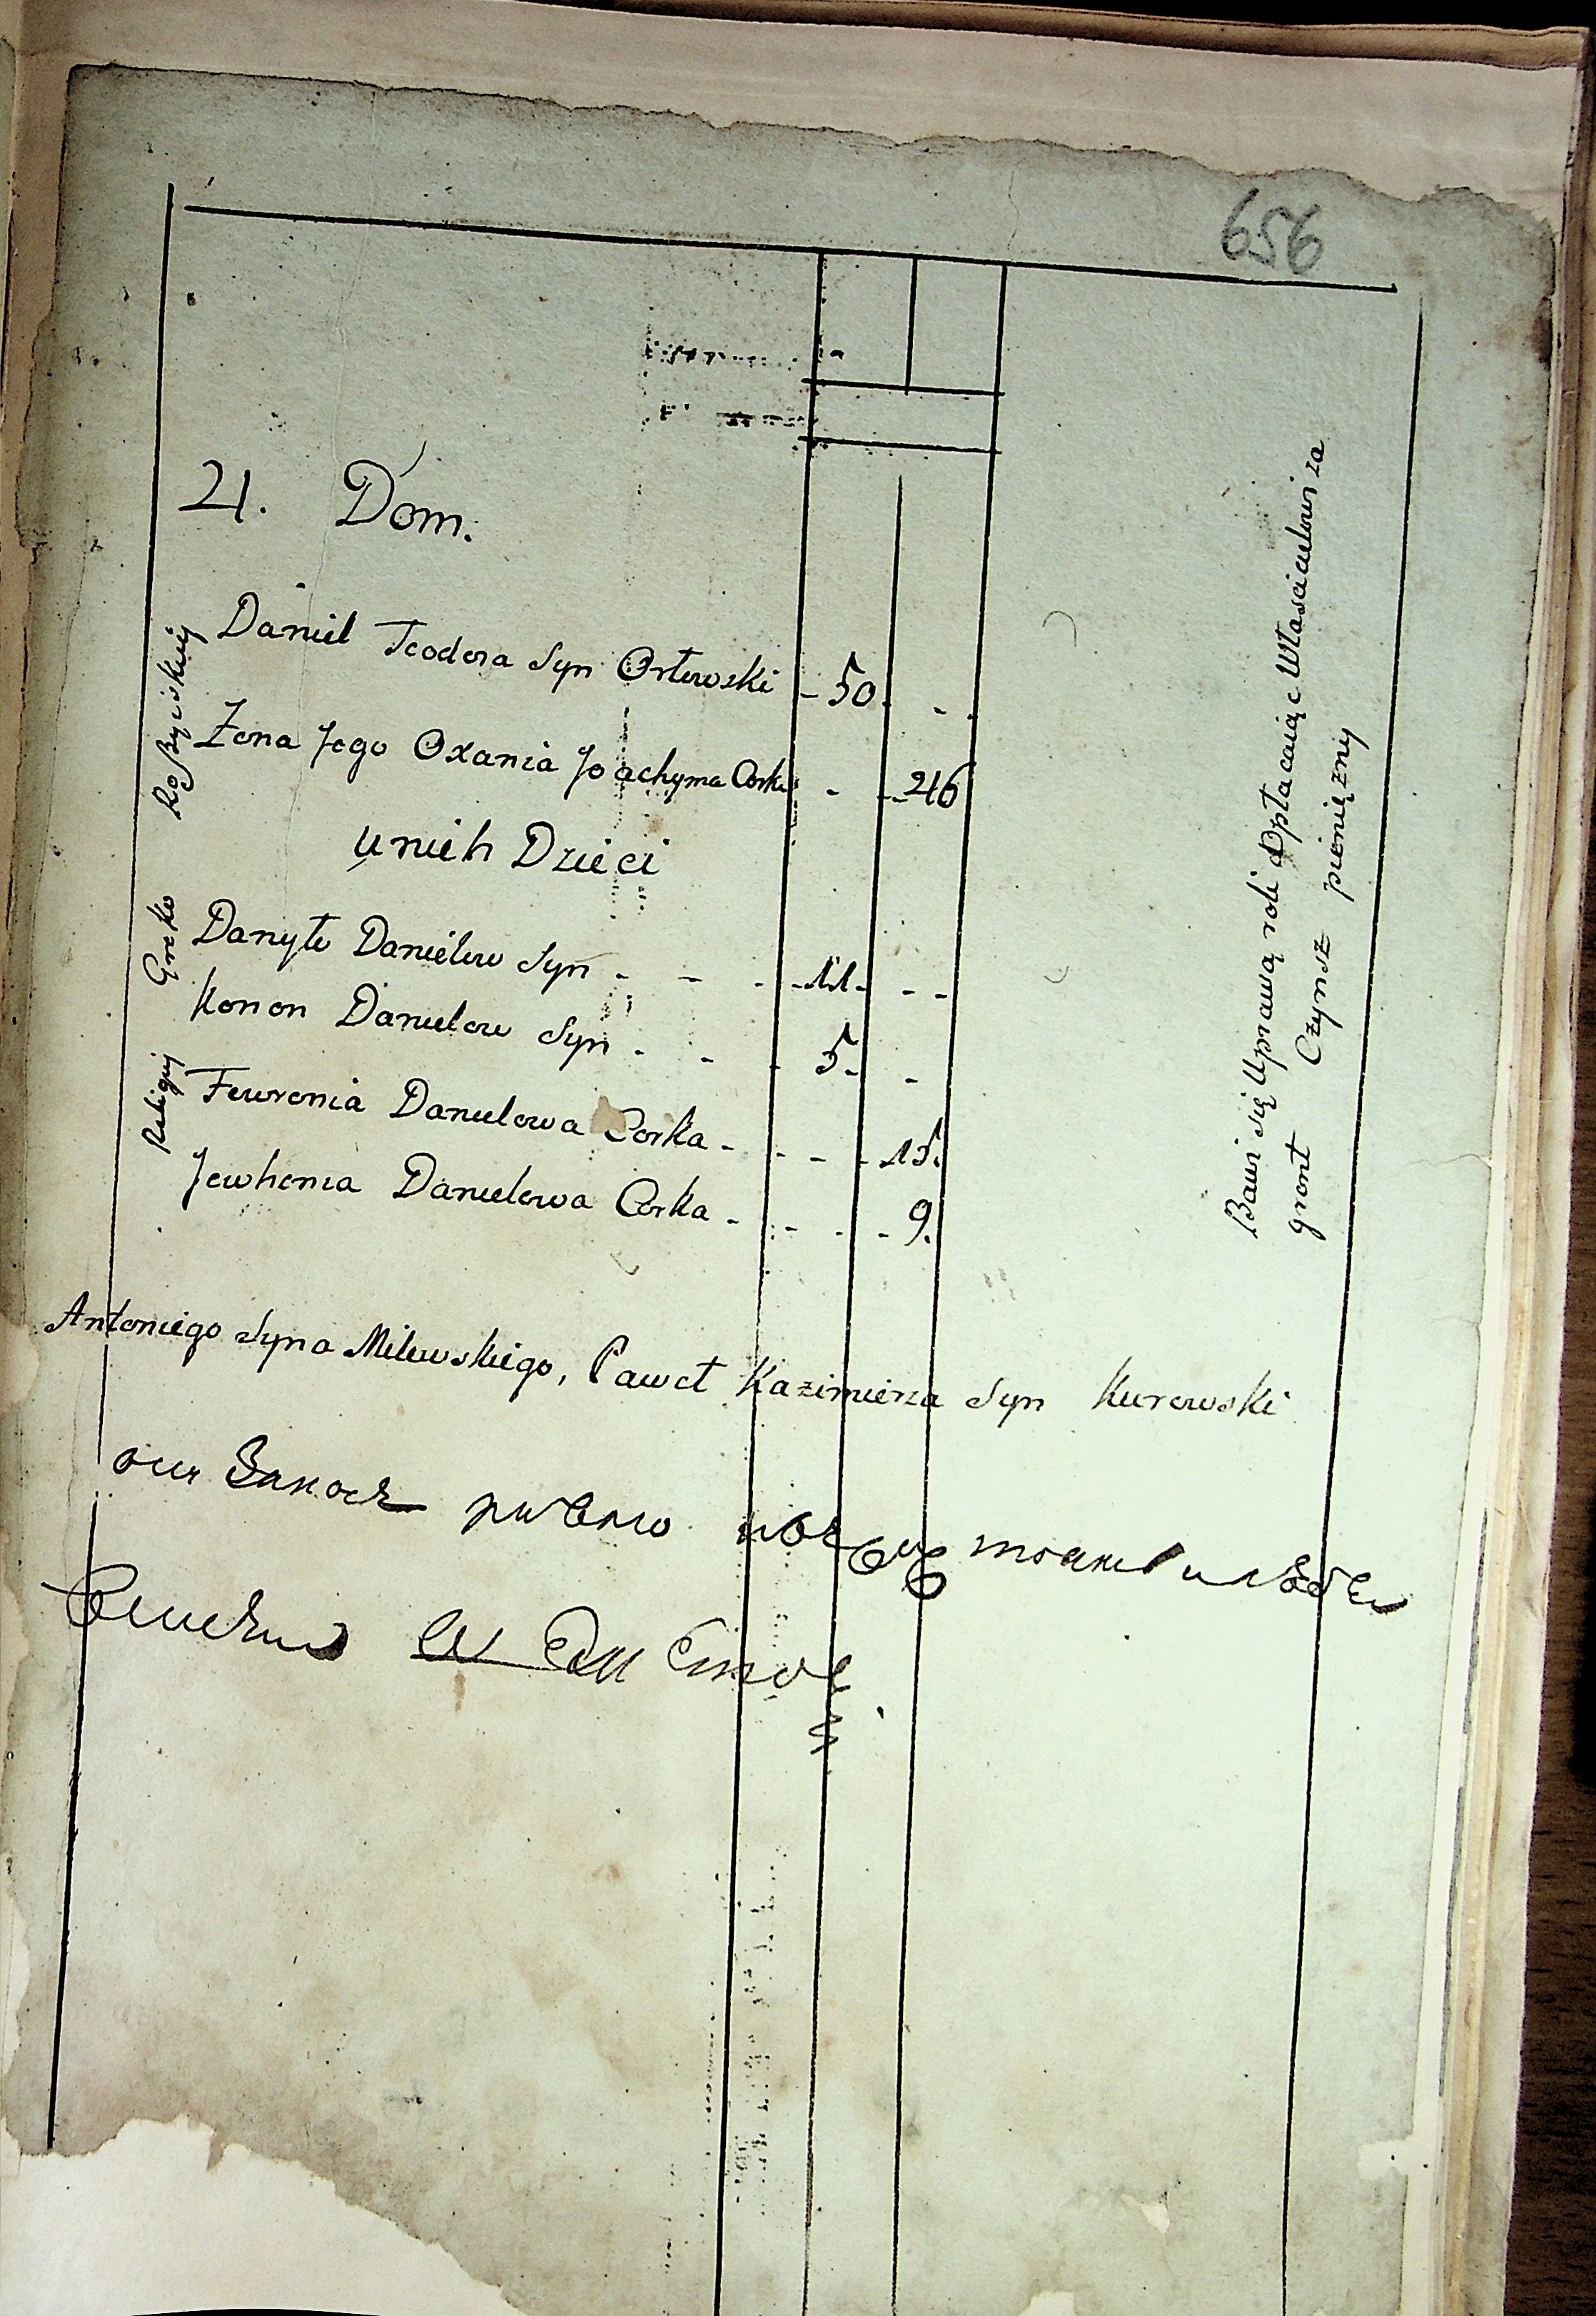 656
21. Dom.
Daniel Teodora Syn Orłowski - 50. - -
Żona Jego Oxania Joachyma Corka - - - 46
u nich Dzieci
Danyło Danielow Syn - - - - 11. - -
Konon Danielow Syn - - - 5. -
Fewronia Danielowa Corka - - - - 15.
Jewhenia Danielowa Corka - - - - 9.
Religij Greko Rossyiskiej
Bawi się Uprawą roli Opłacaiąc Właścicielowi za
gront Czynsz pieniężny
Antoniego Syna Milewskiego, Paweł Kazimierza Syn Kurowski